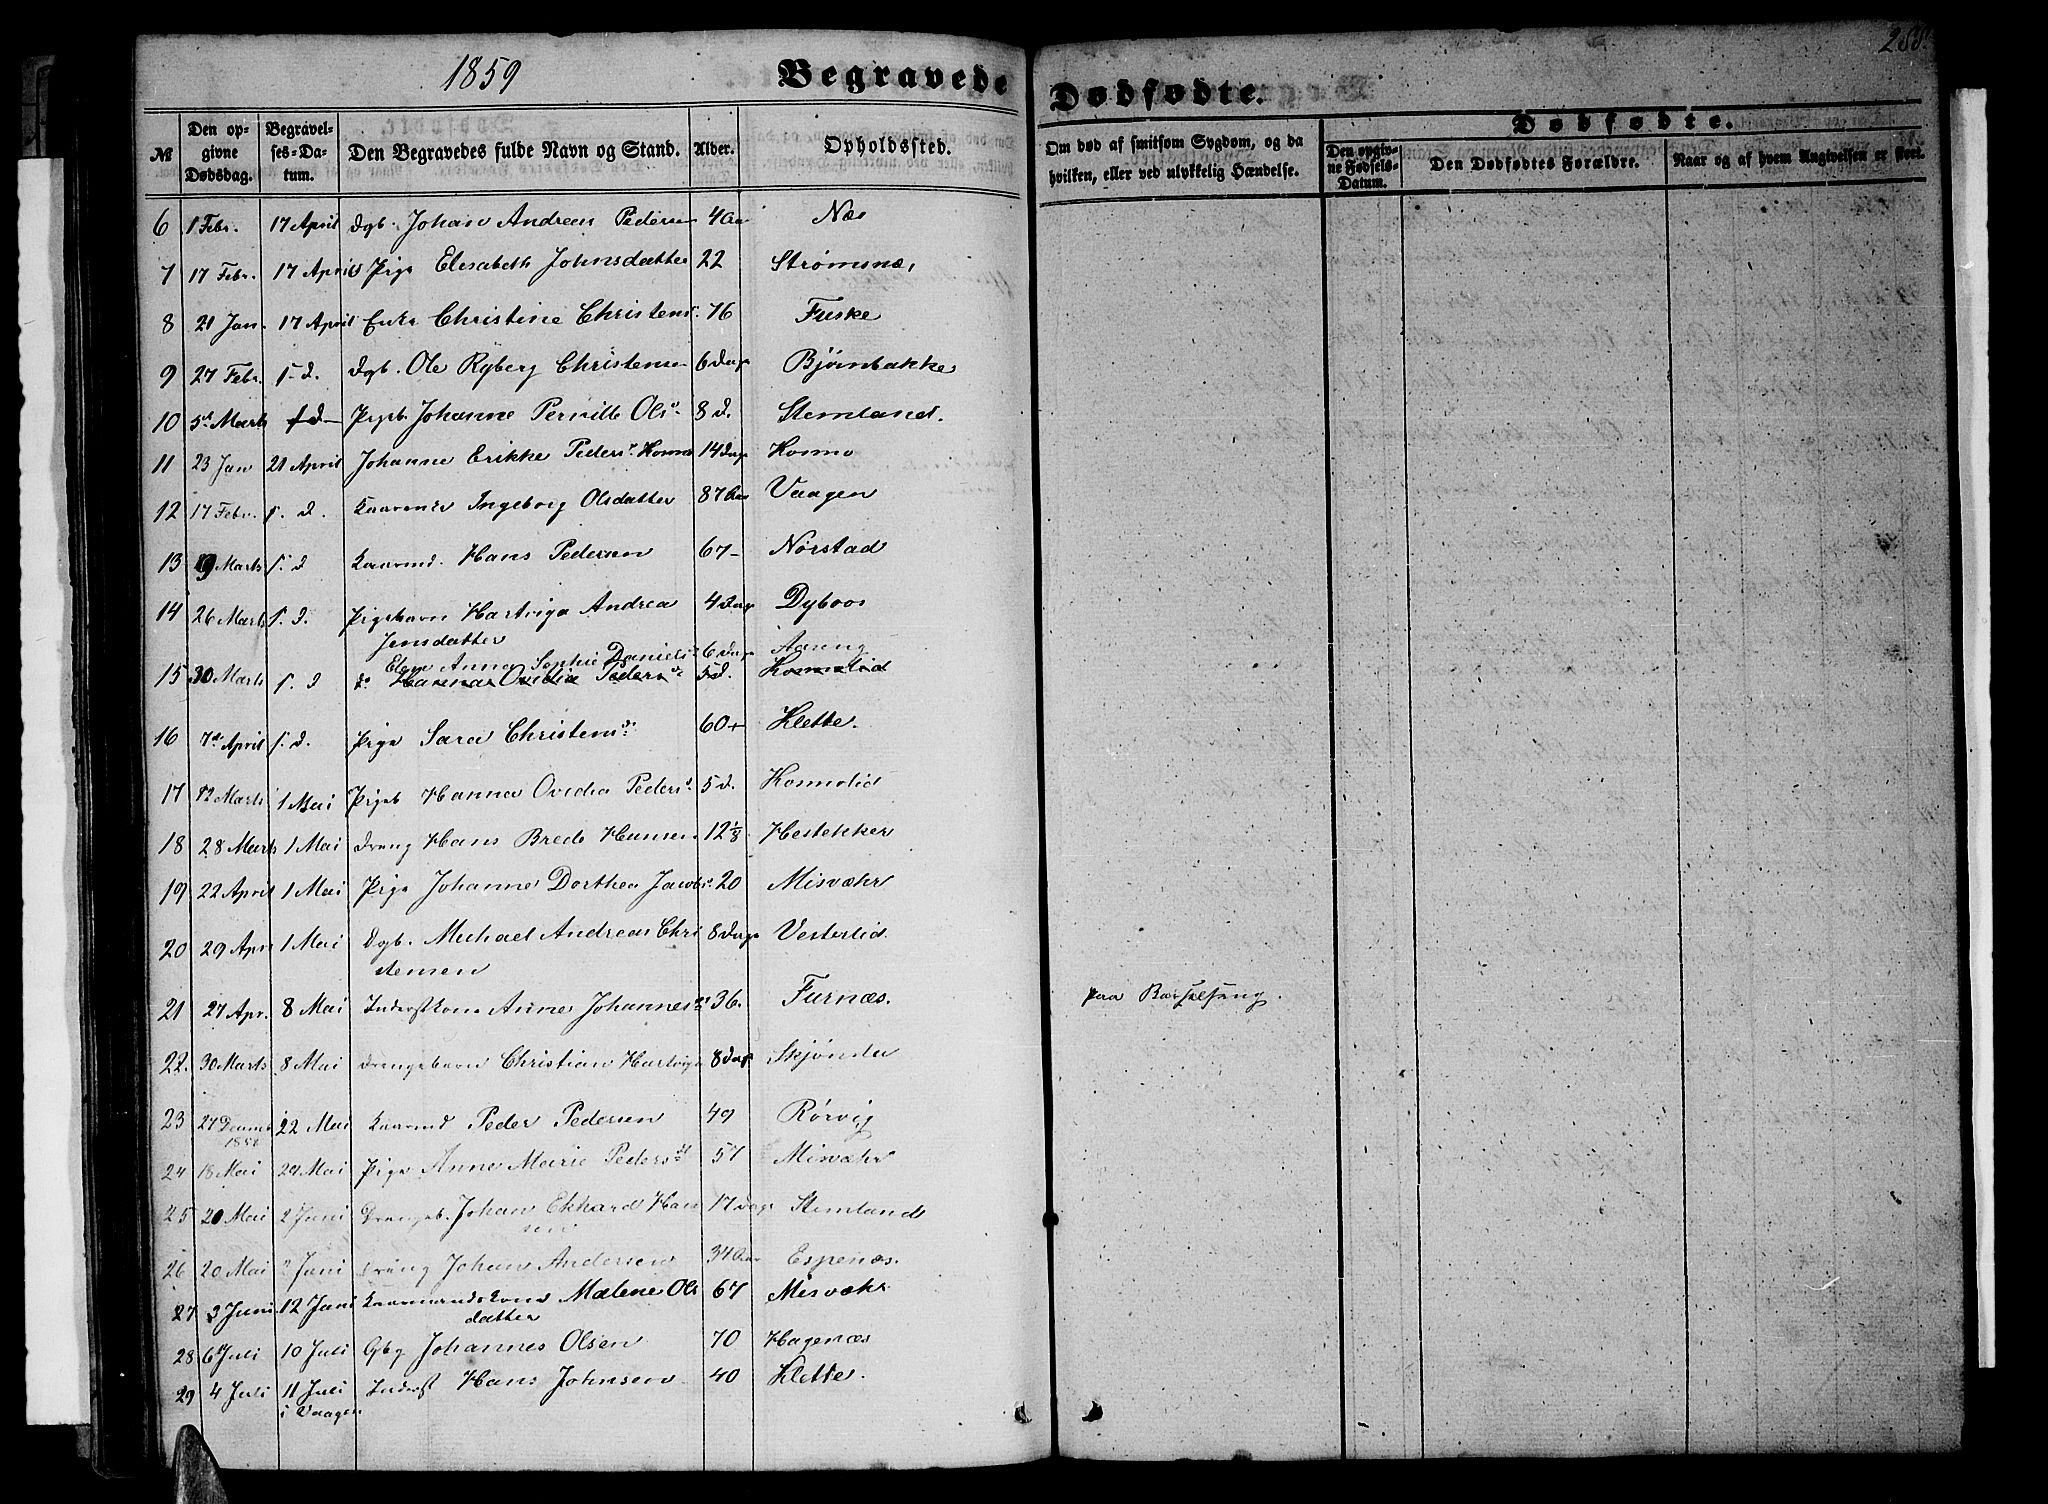 1859 Begravede
Dødfødte.
288.
№
Den opgivne Dødsdag.
Begravelses-Datum.
Den Begravedes fulde Navn og Stand.
Alder.
Opholdssted.
Om død af smitsom Sygdom, og da hvilken, eller ved ulykkelig Hændelse.
Dødfødte.
Den opgivne Fødsels-Datum.
Den Dødfødtes Forældre.
Naar og af hvem Angivelsen er skeet.
6 1 Febr. 17 April Dgb. Johan Andreas Pedersen 4 Aar Næs
7 17 Febr. 17 April Pige Elesabeth Johnsdatter 22 Strømsnæs
8 21 Jan. 17 April Enke Christine Christensd. 76 Fuske
9 27 Febr. s. d. Dgb. Ole Ryberg Christensen 6 Dage Bjørnbakke
10 5d Marts s d Pigeb Johanne Pernille Olsd. 8 d. Stemland.
11 23 Jan 21 April Johanne Erikke Pedersd. Kosmo 14 Dage Kosmo
12 17 Febr. s. d. Kaarenke Ingeborg Olsdatter 87 Aar Vaagen
13 9 Marts s. d Kaarmd. Hans Pedersen 67 - Nørstad
14 26 Marts s. d. Pigebarn Hartviga Andrea 4 Dage Dyboos
Jensdatter
Elen Anna Sophie Daniels. 6 Dage Aaseng
15 30 Marts s. d do Hanna Ovidia Pedersd. 5 d. Kosmolid
16 7d April s. d. Pige Sara Christensd. 60 + Klette.
17 12 Marts 1 Mai Pigeb Hanna Ovidia Pedersd. 5 d. Kosmolid
18 28 Marts 1 Mai Dreng Hans Brede Hansen 12 1/8 Hestekker
19 22 April 1 Mai Pige Johanne Dorthea Jacobsd. 20 Misvæhr
20 29 Apr 1 Mai Dgb. Michael Andreas Chri 8 Dage Vesterlid.
stensen
21 27 Apr. 8 Mai Inderstkone Anne Johannesd. 36. Furnæs. paa Barselseng.
22. 30 Marts 8 Mai Drengebarn Christian Hartvig 8 Dage Skjønslu
23 27 Decemb 1858 22 Mai Kaarmd Peder Pedersen 49 Rørvig
24 18 Mai 29 Mai Pige Anne Marie Pedersdt 57 Misvæhr
25 20 Mai 2 Juni Drengeb. Johan Ekhard Han 17 Dage Stemland
sen
26 20 Mai 2 Juni Dreng Johan Andersen 34 Aar Espenæs.
27 3 Juni 12 Juni Kaarmandskone Malene Ols 67 Misvæhr
datter
28 6 Juli 10 Juli Gbg Johannes Olsen 70 Hagenæs
29 4 Juli 11 Juli Inderst Hans Johnsen 40 Klette.
i Vaagen